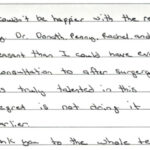 couldn't be happier with the re
y Dr. Donath, Penny, Rachel, and
easant than I could have ever
onsultation to after surgery
s truly talented in this
egret is not doing it
arlier.
nk you to the whole te